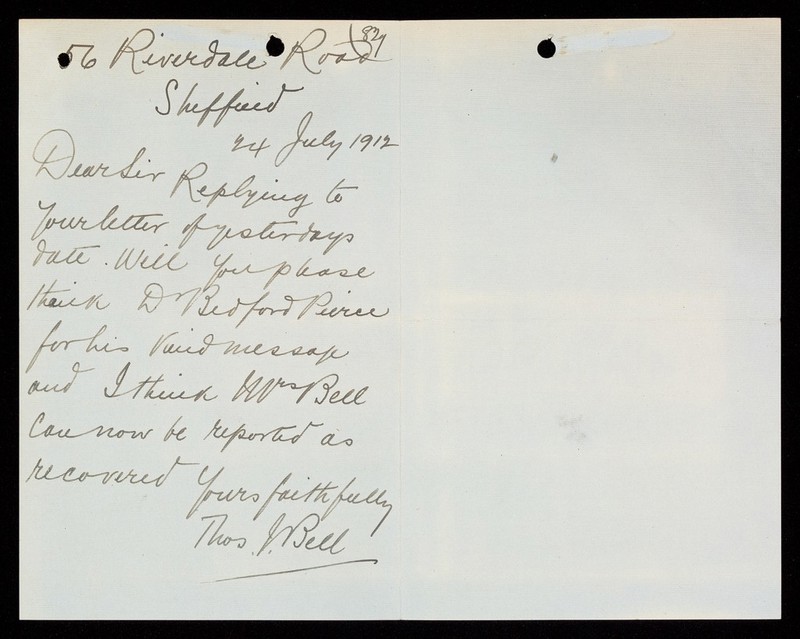 1821
56 Riverdale Road
Sheffield
24 July 1912
Dear Sir Replying to
your letter of yesterdays
date. Will you please
thank Dr Bedford Pierce
for his kind message
and I think Mrs Bell
can now be reported as
recovered Yours faithfully
Thos. J. Bell